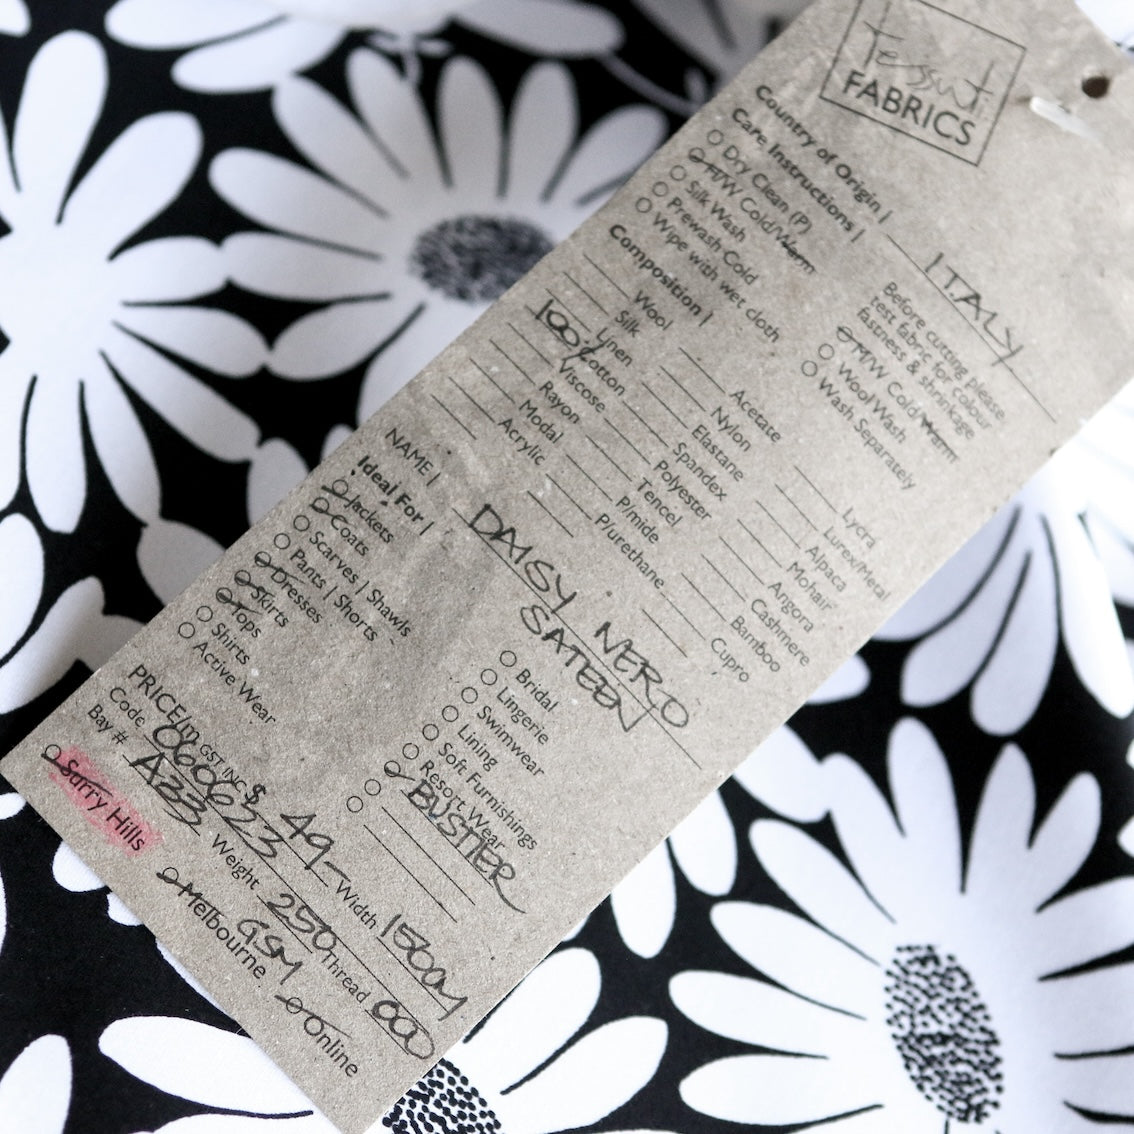 Tessuti
FABRICS
Country of Origin | ITALY
Care Instructions |
Dry Clean (P)
H/W Cold/Warm
Silk Wash
Prewash Cold
Wipe with wet cloth
Before cutting please
test fabric for colour
fastness & shrinkage
M/W Cold/Warm
Wool Wash
Wash Separately
Composition |
Wool
Silk
Linen
100% Cotton
Viscose
Rayon
Modal
Acrylic
Acetate
Nylon
Elastane
Spandex
Polyester
Tencel
P/mide
P/urethane
Lycra
Lurex/Metal
Alpaca
Mohair
Angora
Cashmere
Bamboo
Cupro
NAME | DAISY NERO
SATEEN
Ideal For |
Jackets
Coats
Scarves | Shawls
Pants | Shorts
Dresses
Skirts
Tops
Shirts
Active Wear
Bridal
Lingerie
Swimwear
Lining
Soft Furnishings
Resort Wear
BUSTIER
PRICE/m GST INC $ 49-
Code 060623 Width 150cm
Bay # A33 Weight 250 GSM Thread 000
Surry Hills Melbourne Online